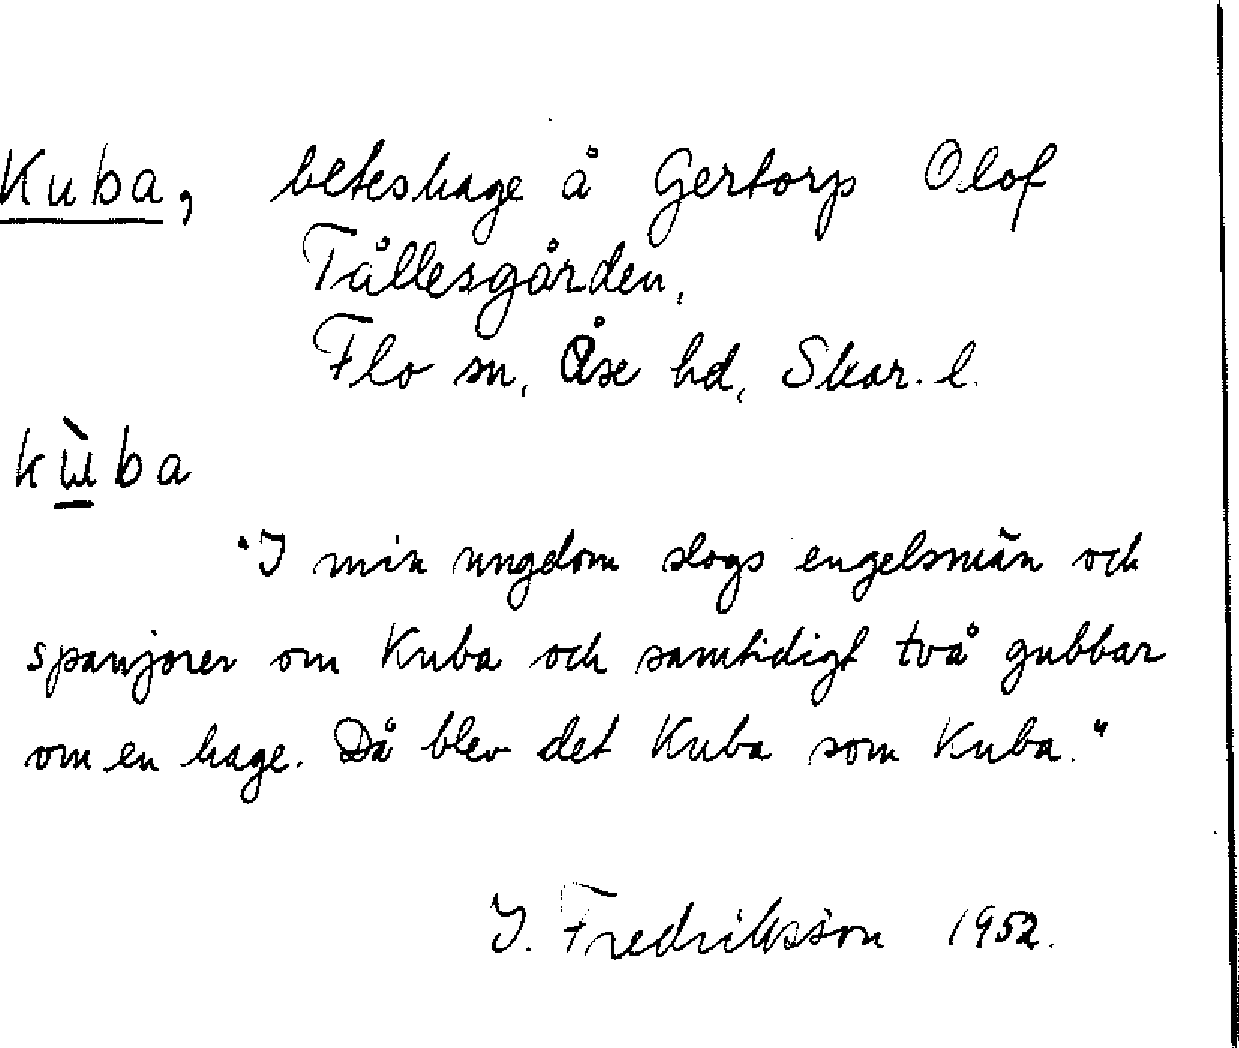 Kuba, beteshage å Gertorp Olof
Tållesgården,
Flo sn, Åse hd, Skar. l.
kùba
"I min ungdom slogs engelsmän och
spanjorer om Kuba och samtidigt två gubbar
om en hage. Då blev det Kuba som Kuba."
I. Fredriksson 1952.